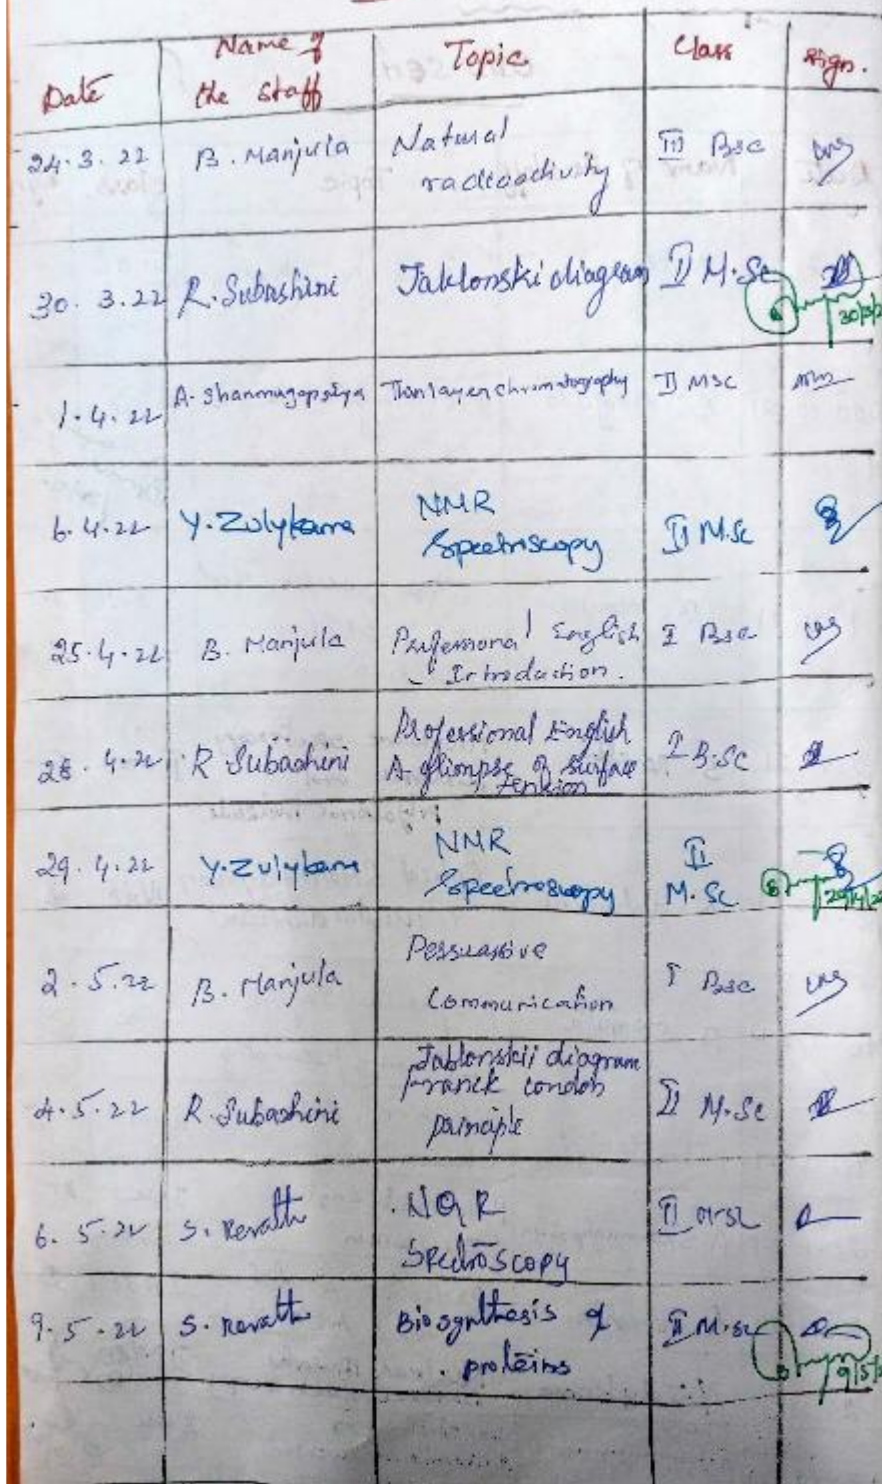 Date Name of the staff Topic Class sign.
24.3.22 B. Manjula Natural radioactivity III Bsc
30.3.22 R. Subashini Jablonski diagram II M.Sc
30/3/2
1.4.22 A. Shanmugapriya Thin layer chromatography II MSC
6.4.22 Y. Zulykama NMR Spectroscopy II M.Sc
25.4.22 B. Manjula Professional English Introduction. I Bsc
28.4.22 R Subashini Professional English A glimpse of surface tension I B.Sc
29.4.22 Y. Zulykama NMR Spectroscopy II M.Sc
29/4/2
2.5.22 B. Manjula Persuassive Communication I Bsc
4.5.22 R. Subashini Jablonskii diagram Franck condon principle II M.Sc
6.5.22 S. Revathi NQR Spectroscopy II MSc
9.5.22 S. Revathi Biosynthesis of proteins II M.Sc
9/5/2